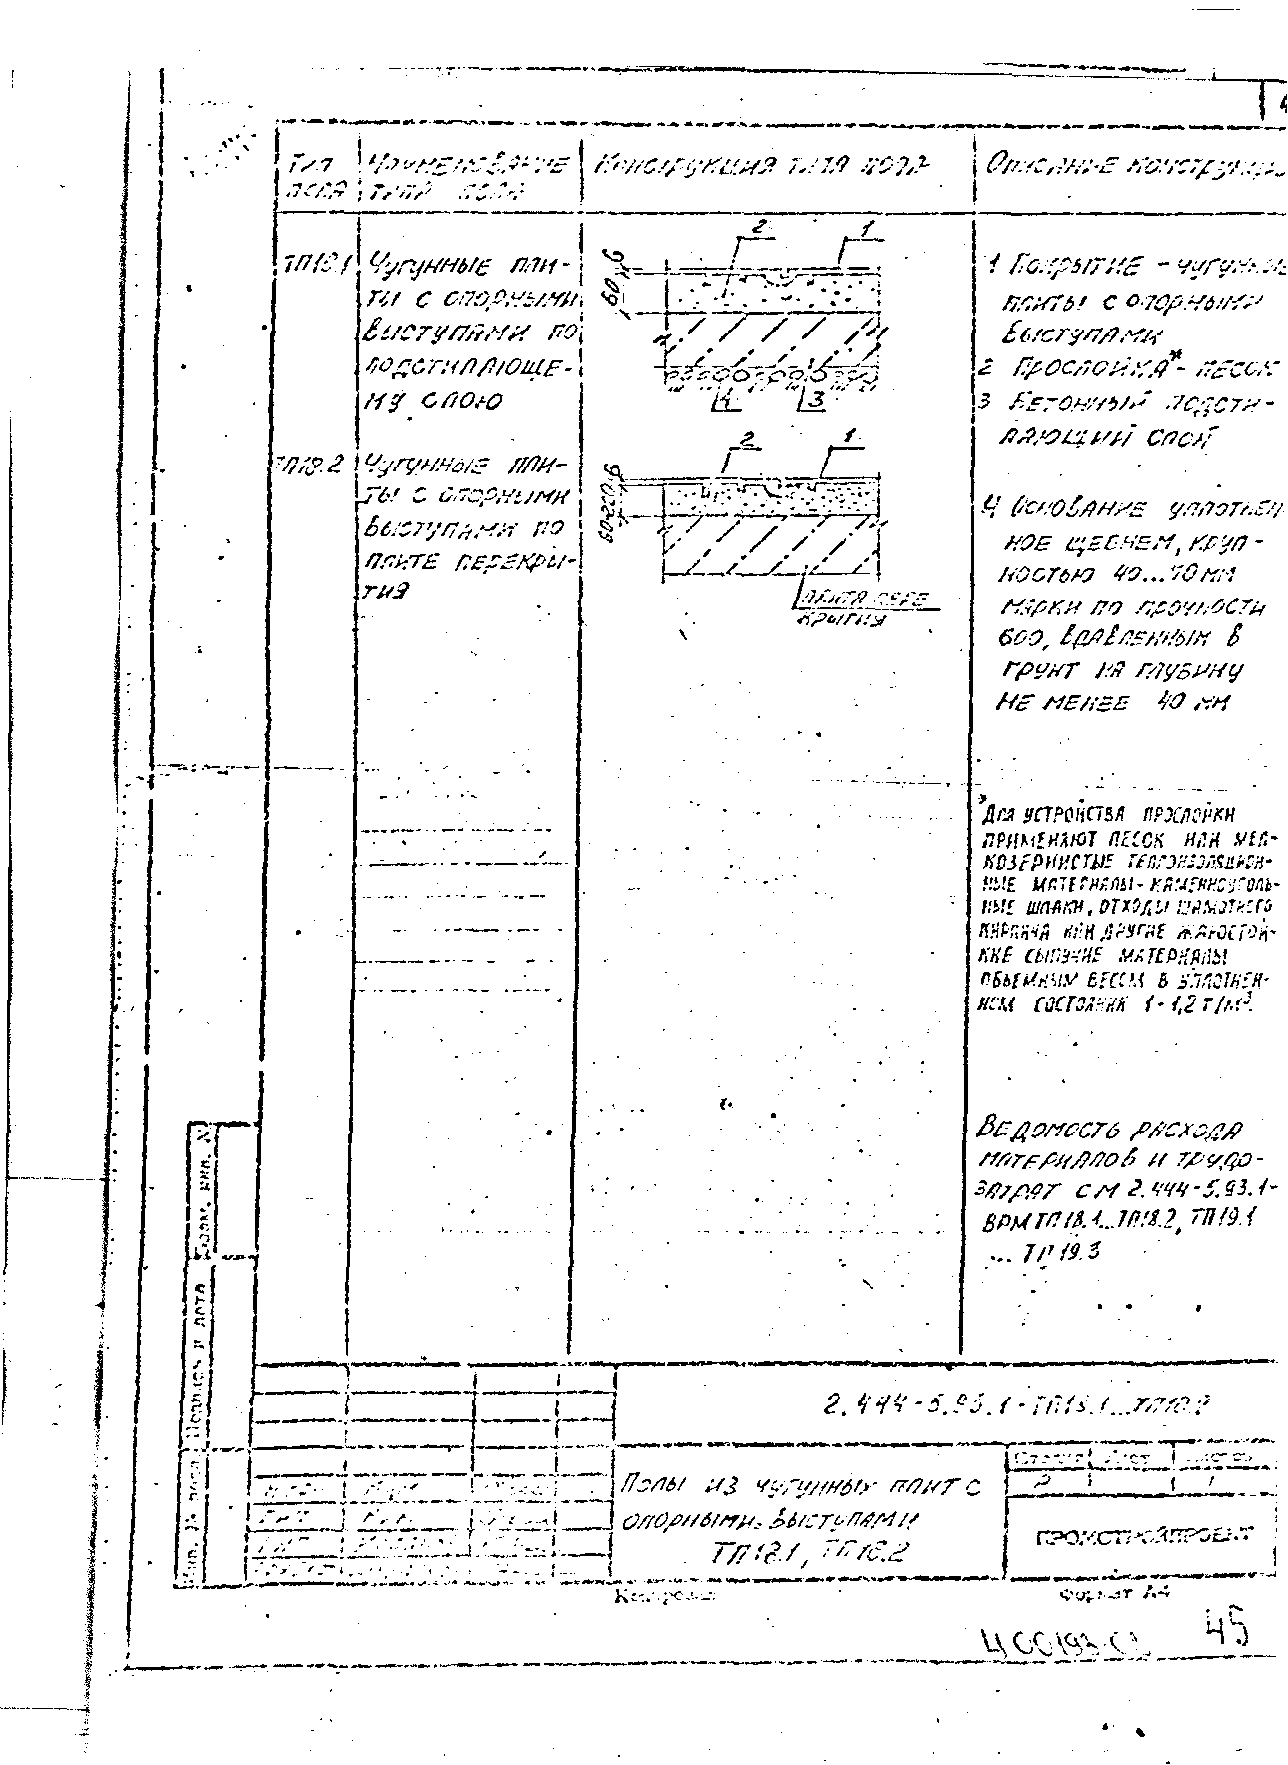 Тип пола
Наименование типа пола
Конструкция типа пола
Описание конструкци
ТП18.1
Чугунные пли-
ты с опорными
выступами по
подстилающе-
му слою
2 1
6
60
4 3
1 Покрытие - чугунные
плиты с опорными
выступами
2 Прослойка* - песок
3 Бетонный подсти-
лающий слой
ТП18.2
Чугунные пли-
ты с опорными
выступами по
плите перекры-
тия
2 1
6
60-220
Плита пере
крытия
4 Основание уплотнен-
ное щебнем, круп-
ностью 40...70 мм
марки по прочности
600, вдавленным в
грунт на глубину
не менее 40 мм
*Для устройства прослойки
применяют песок или мел-
козернистые теплоизоляцион-
ные материалы - каменноуголь-
ные шлаки, отходы шамотного
кирпича или другие жаростой-
кие сыпучие материалы
объемным весом в уплотнен-
ном состоянии 1-1,2 т/м³.
Ведомость расхода
материалов и трудо-
затрат см 2.444-5.93.1-
ВРМ ТП18.1...ТП18.2, ТП19.1
... ТП19.3
Взам. инв. №
Подпись и дата
Инв. № подл.
2.444-5.93.1-ТП18.1...ТП18.2
Полы из чугунных плит с
опорными выступами
ТП18.1, ТП18.2
Стадия Лист Листов
Р 1
ПРОМСТРОЙПРОЕКТ
Копировал
Формат А4
45